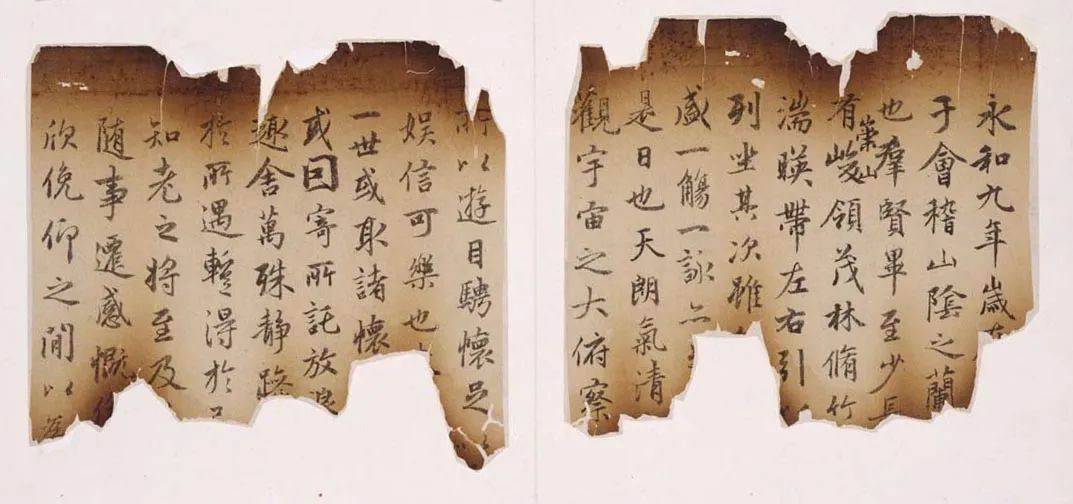 永和九年歲
于會稽山陰之蘭
也羣賢畢至少長
有崇山峻領茂林脩竹
湍暎帶左右引
列坐其次雖
盛一觴一詠
是日也天朗氣清
觀宇宙之大俯察
所以遊目騁懷足
娛信可樂也
一世或取諸懷
或因寄所託放浪
趣舍萬殊静躁
於所遇蹔得於
知老之將至及
随事遷感慨係
欣俛仰之間以